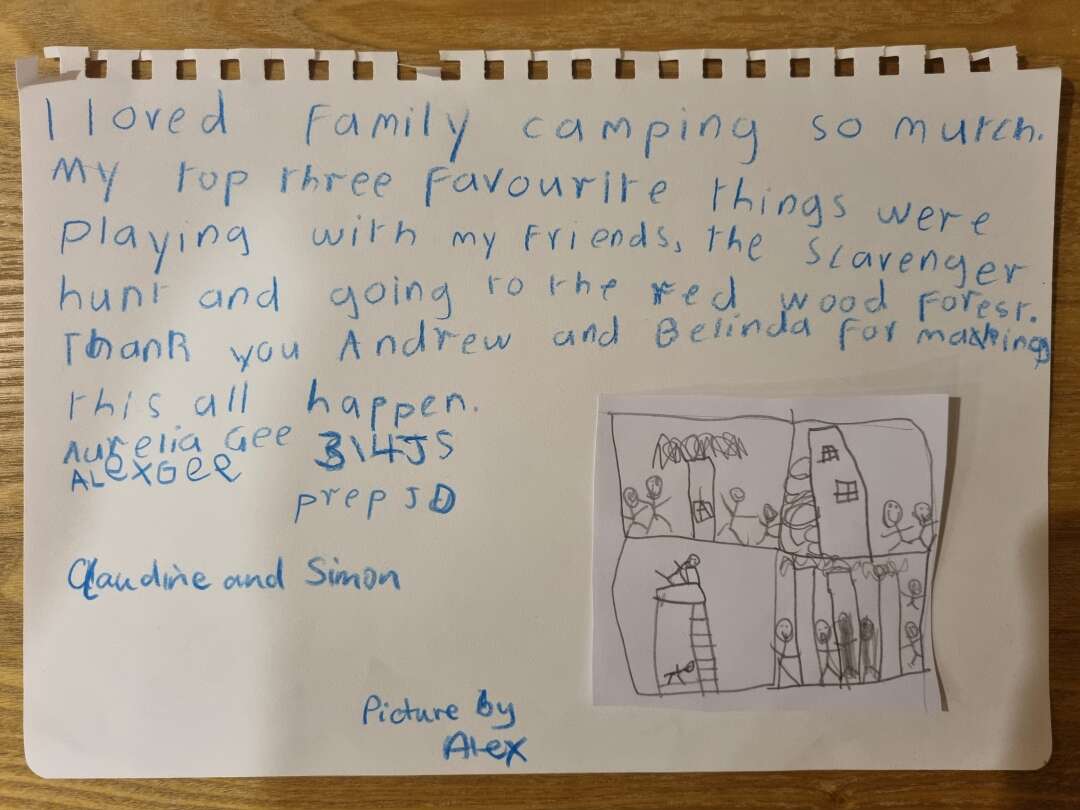 I loved family camping so mutch.
My top three favourite things were
playing with my friends, the scavenger
hunt and going to the red wood forest.
Thank you Andrew and Belinda for making
this all happen.
Aurelia Gee 3/4JS
ALexGee
prep JD
Claudine and Simon
Picture by
Alex